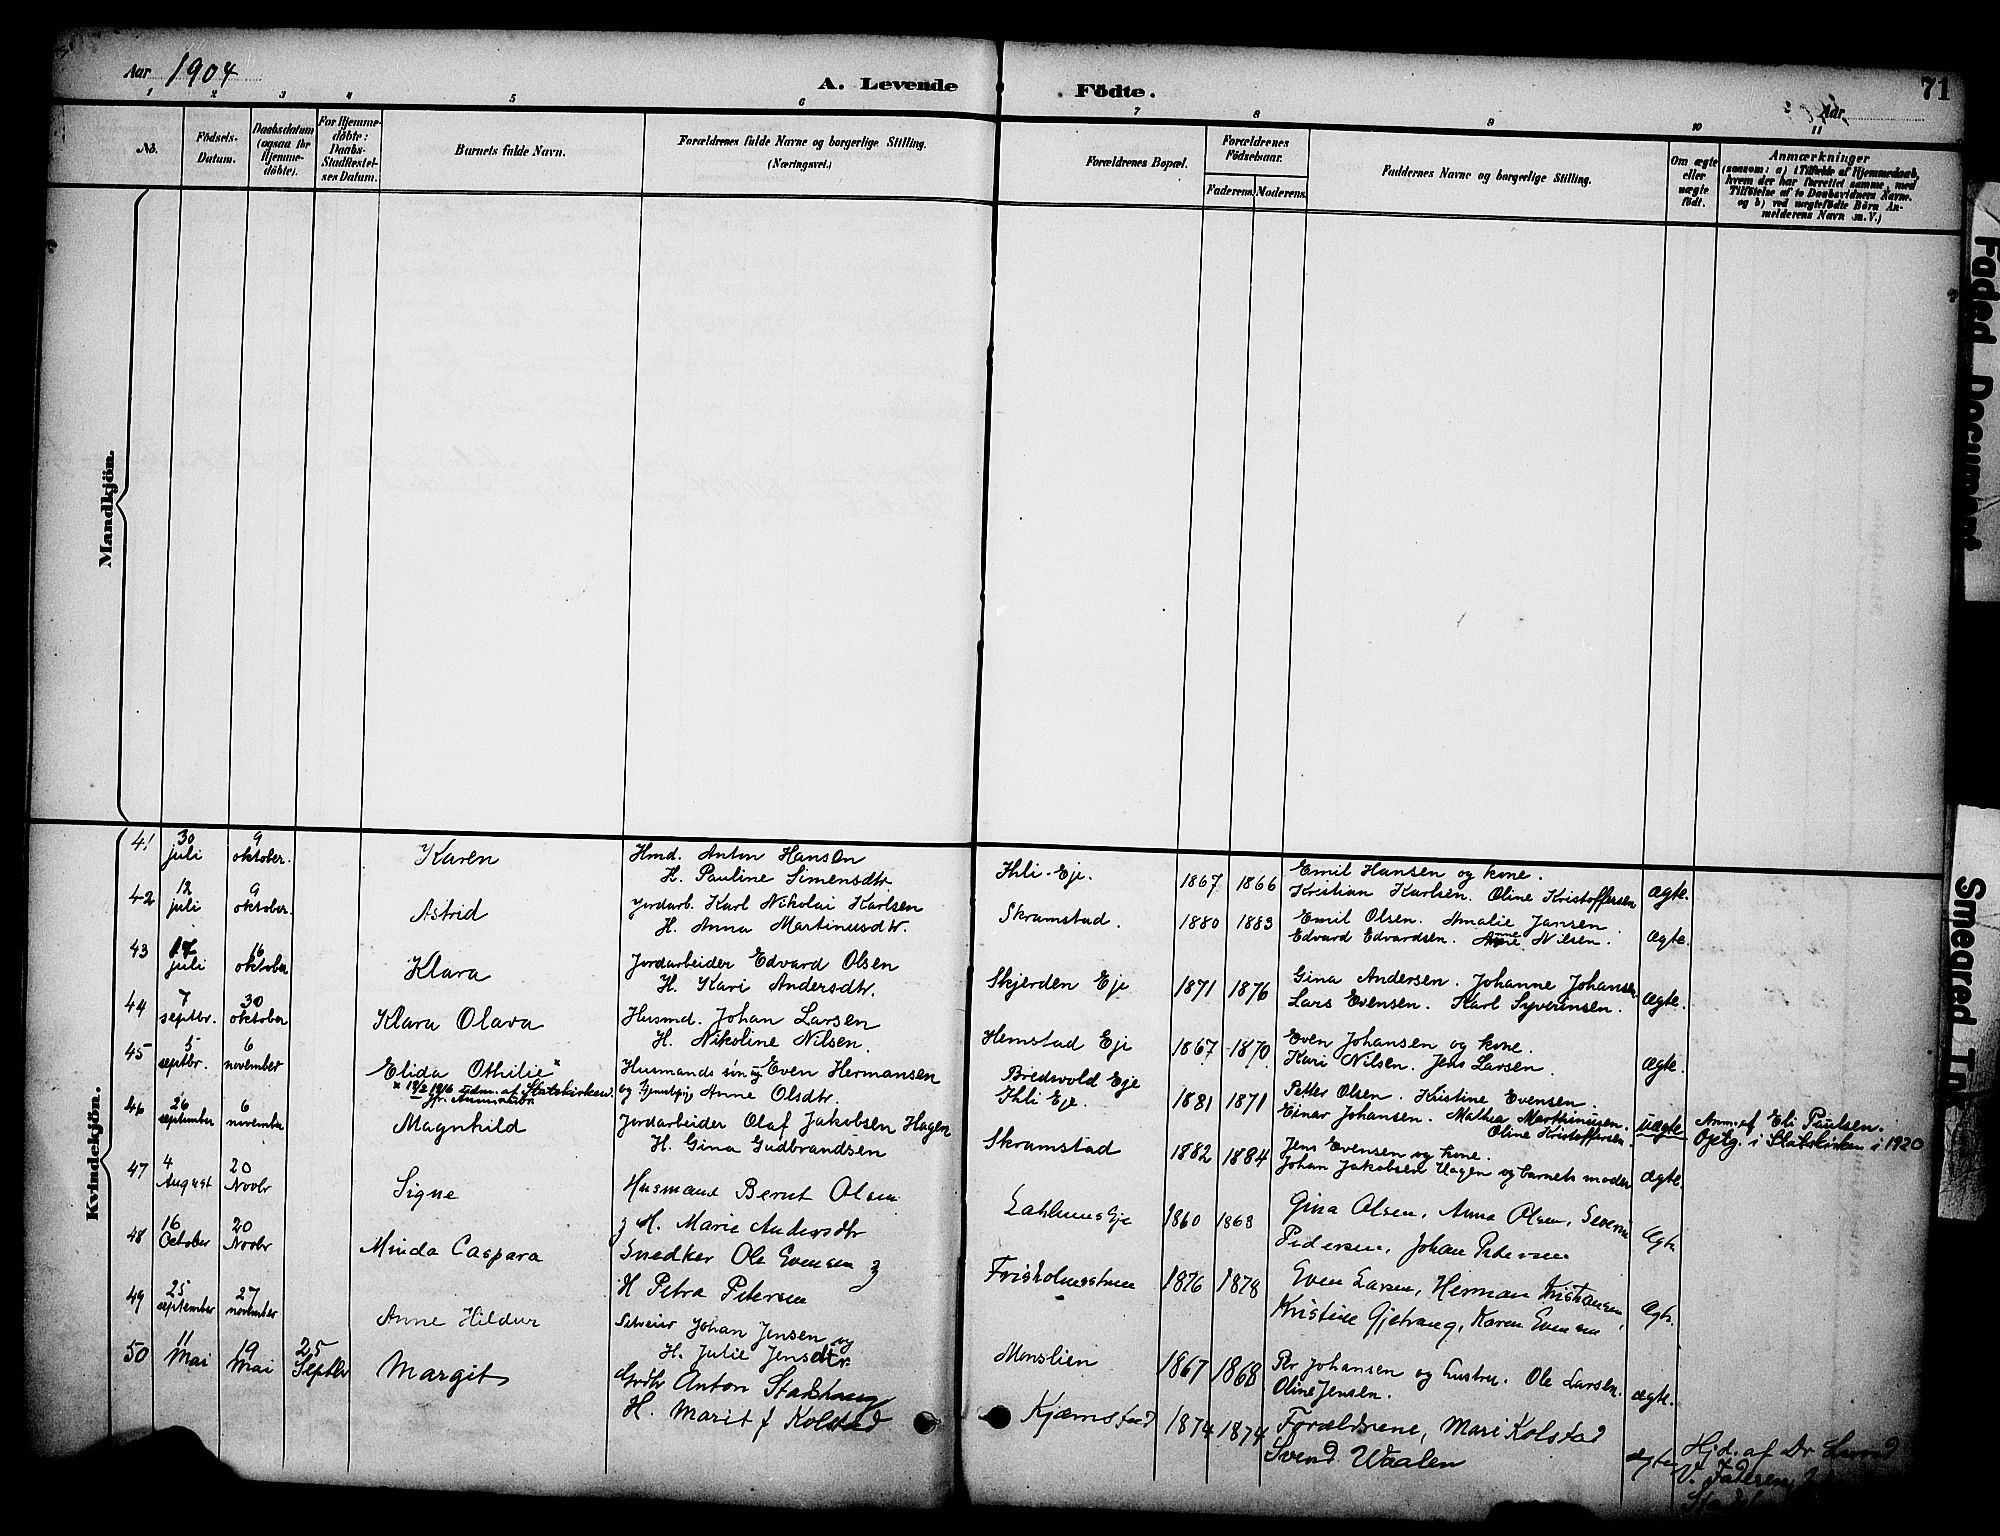 Aar 1904
A. Levende Födte.
71
Aar
1 2 3 4 5 6 7 8 9 10 11
No.
Födsels-Datum.
Daabsdatum (ogsaa for Hjemme-döbte).
For Hjemme-döbte: Daabs-Stadfæstel-ses Datum.
Barnets fulde Navn.
Forældrenes fulde Navne og borgerlige Stilling.
(Næringsvei.)
Forældrenes Bopæl.
Forældrenes Födselsaar.
Faderens. Moderens.
Faddernes Navne og borgerlige Stilling.
Om ægte eller uægte födt.
Anmærkninger
(saasom: a) i Tilfælde af Hjemmedaab, hvem der har forrettet samme, med Tilföielse af to Daabsvidners Navne. og b) ved uægtefödte Börn An-melderens Navn m.V.)
Mandkjön.
Kvindekjön.
41 30 juli 9 oktober. Karen Hmd. Anton Hansen
H. Pauline Simensdtr. Ihli-Eje. 1867 1866 Emil Hansen og kone.
Kristian Karlsen. Oline Kristoffersen ægte.
42 12 juli 9 oktober. Astrid Jordarb. Karl Nikolai Karlsen
H. Anna Martinusdtr. Skramstad. 1880 1883 Emil Olsen. Amalie Jansen.
Edvard Edvardsen. Anne Nilsen. Ægte.
43 17 juli 16 oktober Klara Jordarbeider Edvard Olsen
H. Kari Andersdtr. Skjerden Eje 1871 1876 Gina Andersen. Johanne Johansen
Lars Evensen. Karl Syverinsen. Ægte.
44 7 septbr. 30 oktober Klara Olava Husmd. Johan Larsen
H. Nikoline Nilsen. Hemstad Eje 1867 1870 Even Johansen og kone.
Kari Nilsen. Jens Larsen. Ægte.
45 5 septbr. 6 november Elida Othilie x Husmands søn ug Even Hermansen
og Anne Olsdtr. Bredsvold Eje
Ihli Eje. 1881 1871 Petter Olsen. Kristine Evensen.
Einar Johansen. Mathea Marthinusen.
Oline Kristoffersen. uægte Anm. af Eli Paulsen.
Optg. i Statskirken i 1920
x 19/2 1916 udm. af Statskirken.
46 26 september 6 november Magnhild Jordarbeider Olaf Jakobsen Hagen
H. Gina Gudbrandsen Skramstad 1882 1884 Jens Evensen og kone.
Johan Jakobsen Hagen og barnets moder ægte.
47 4 August 20 Novbr Signe Husmand Bernt Olsen
H. Marie Andersdtr 1860 1868 Gina Olsen, Anna Olsen,
Pedersen, Johan Pedersen Ægte
48 16 October 20 Novbr Minda Caspara Snedker Ole Evensen
H Petra Petersen 1876 1878 Even Larsen, Herman Kristiansen
Kristine Karen Evensen Ægte.
49 25 september 27 november Anne Hildur Johan Jensen og
H. Julie Jensdtr. Monslien 1867 1868 Per Johansen og hustru. Ole Larsen.
Oline Jensen. ægte.
50 11 Mai 19 Mai 25 Septbr Margit Grdbr Anton
H. Marit f Kolstad Kjæmstad 1874 1874 Forældrene, Mari Kolstad
Svend Waalen ægte Hjd. af Dr
Faded Document
Smeared Ink